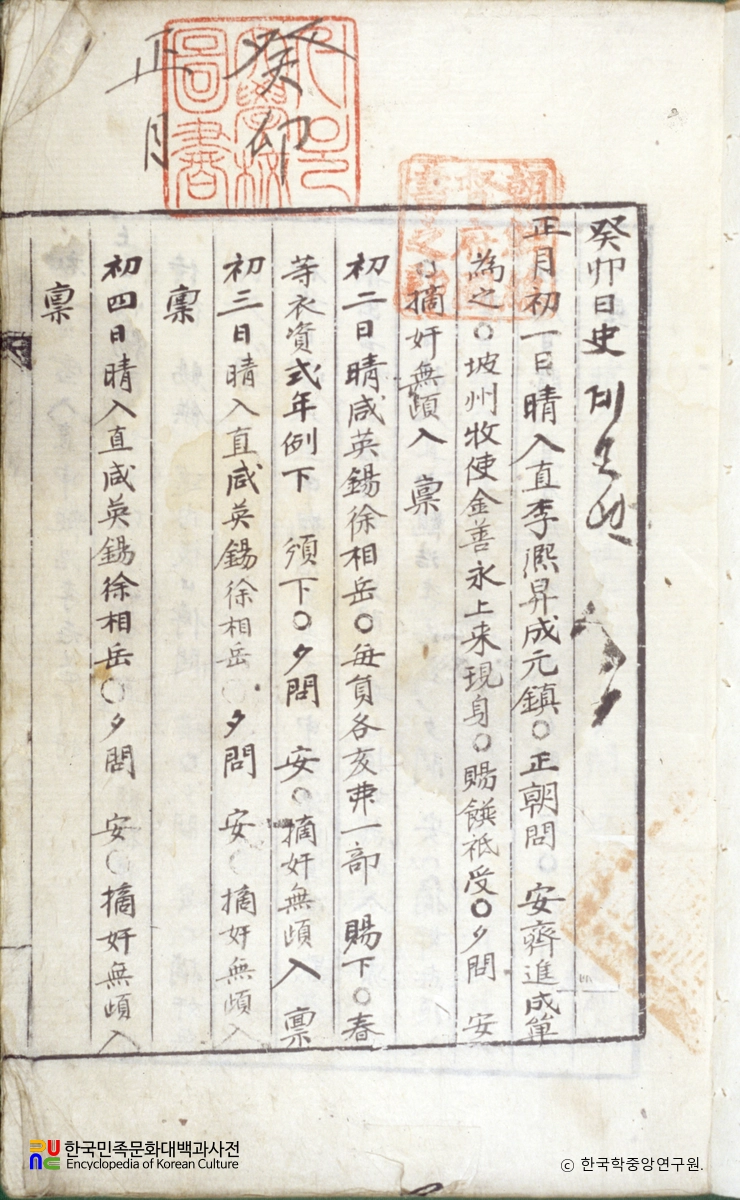 癸卯
正月
癸卯日史
正月初一日晴入直李凞昇成元鎭○正朝問○安齊進成單
為之○坡州牧使金善永上來現身○賜饌祗受○夕問 安
○摘奸無頉入 稟
初二日晴咸英錫徐相岳○每員各亥弗一部 賜下○春
等衣資式年例下 須下○夕問 安○摘奸無頉入 稟
初三日晴入直咸英錫徐相岳○夕問 安○摘奸無頉入
稟
初四日晴入直咸英錫徐相岳○夕問 安○摘奸無頉入
稟
한국민족문화대백과사전
Encyclopedia of Korean Culture
© 한국학중앙연구원.